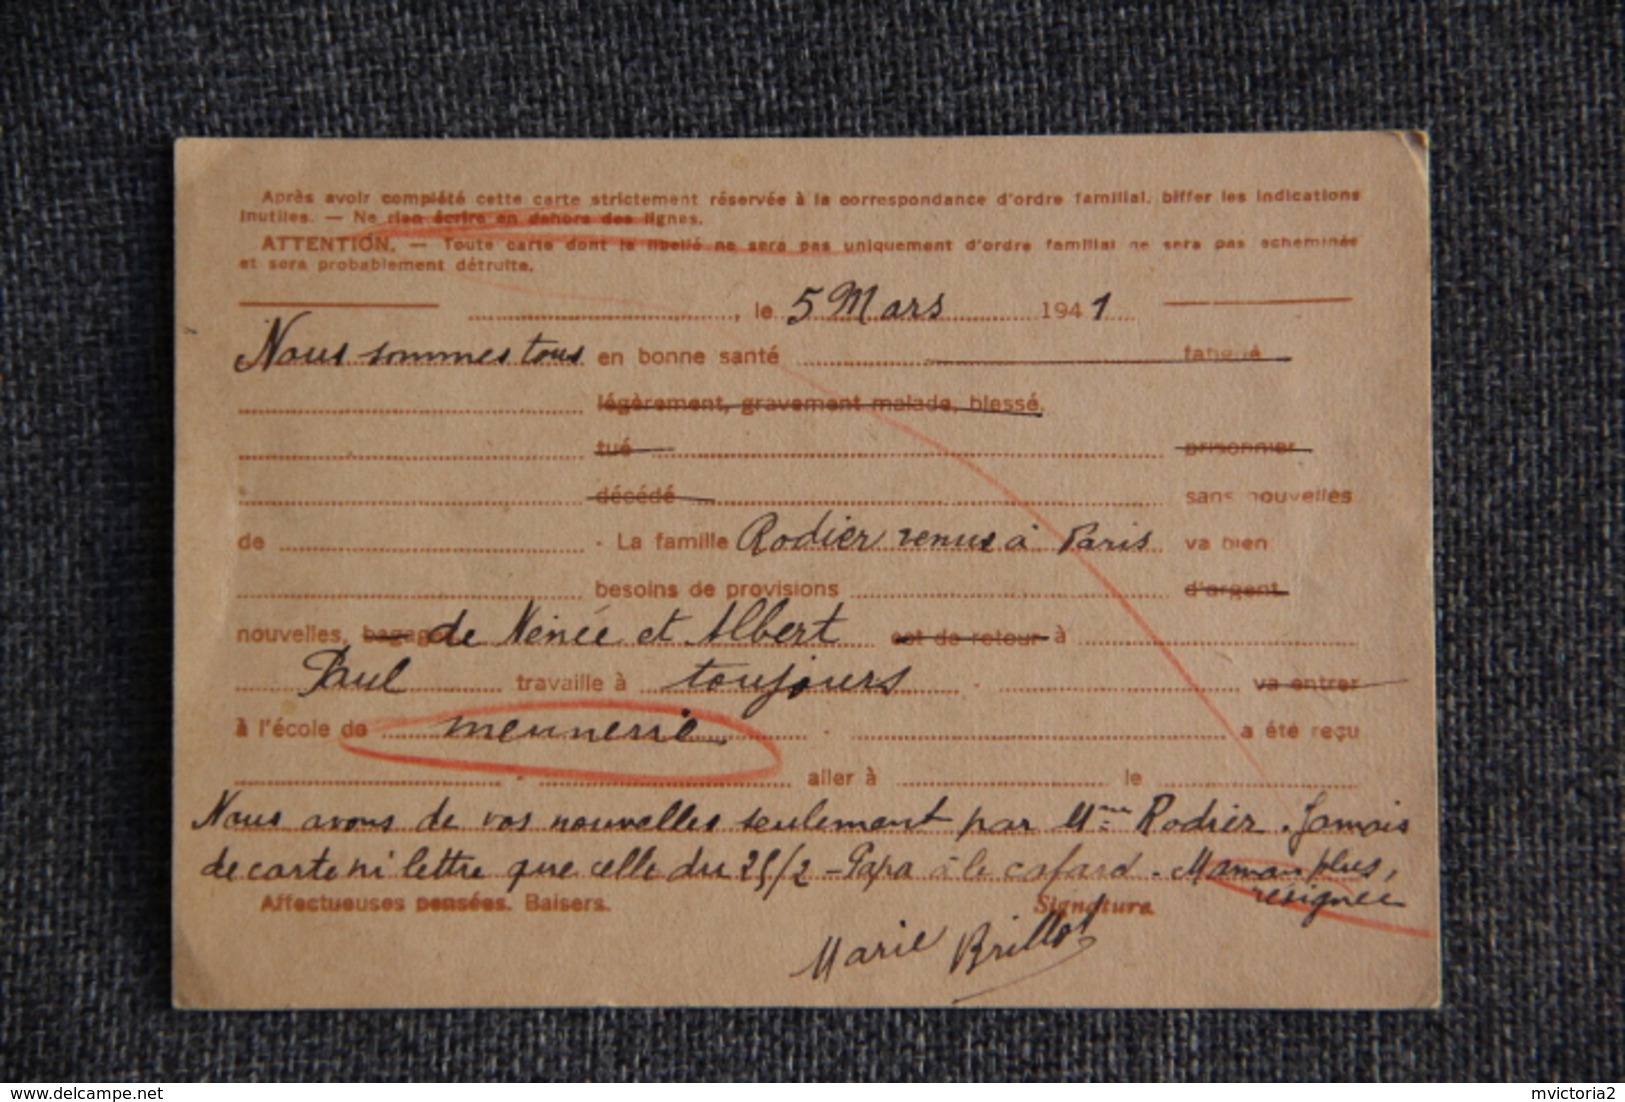 Après avoir complété cette carte strictement réservée à la correspondance d'ordre familial, biffer les indications
inutiles. — Ne rien écrire en dehors des lignes.
ATTENTION. — Toute carte dont le libellé ne sera pas uniquement d'ordre familial ne sera pas acheminée
et sera probablement détruite.
, le 5 Mars 1941
Nous sommes tous en bonne santé fatigué
légèrement, gravement malade, blessé.
tué prisonnier
décédé sans nouvelles
de - La famille Rodier venus à Paris va bien
besoins de provisions d'argent
nouvelles, bagages de Nénée et Albert est de retour à
Paul travaille à toujours va entrer
à l'école de meunerie a été reçu
aller à le
Nous avons de vos nouvelles seulement par Mme Rodier. Jamais
de carte ni lettre que celle du 25/2 - Papa à le cafard. Maman plus,
résignée
Affectueuses pensées. Baisers. Signature.
Marie Brillot
delcampe.net mvictoria2